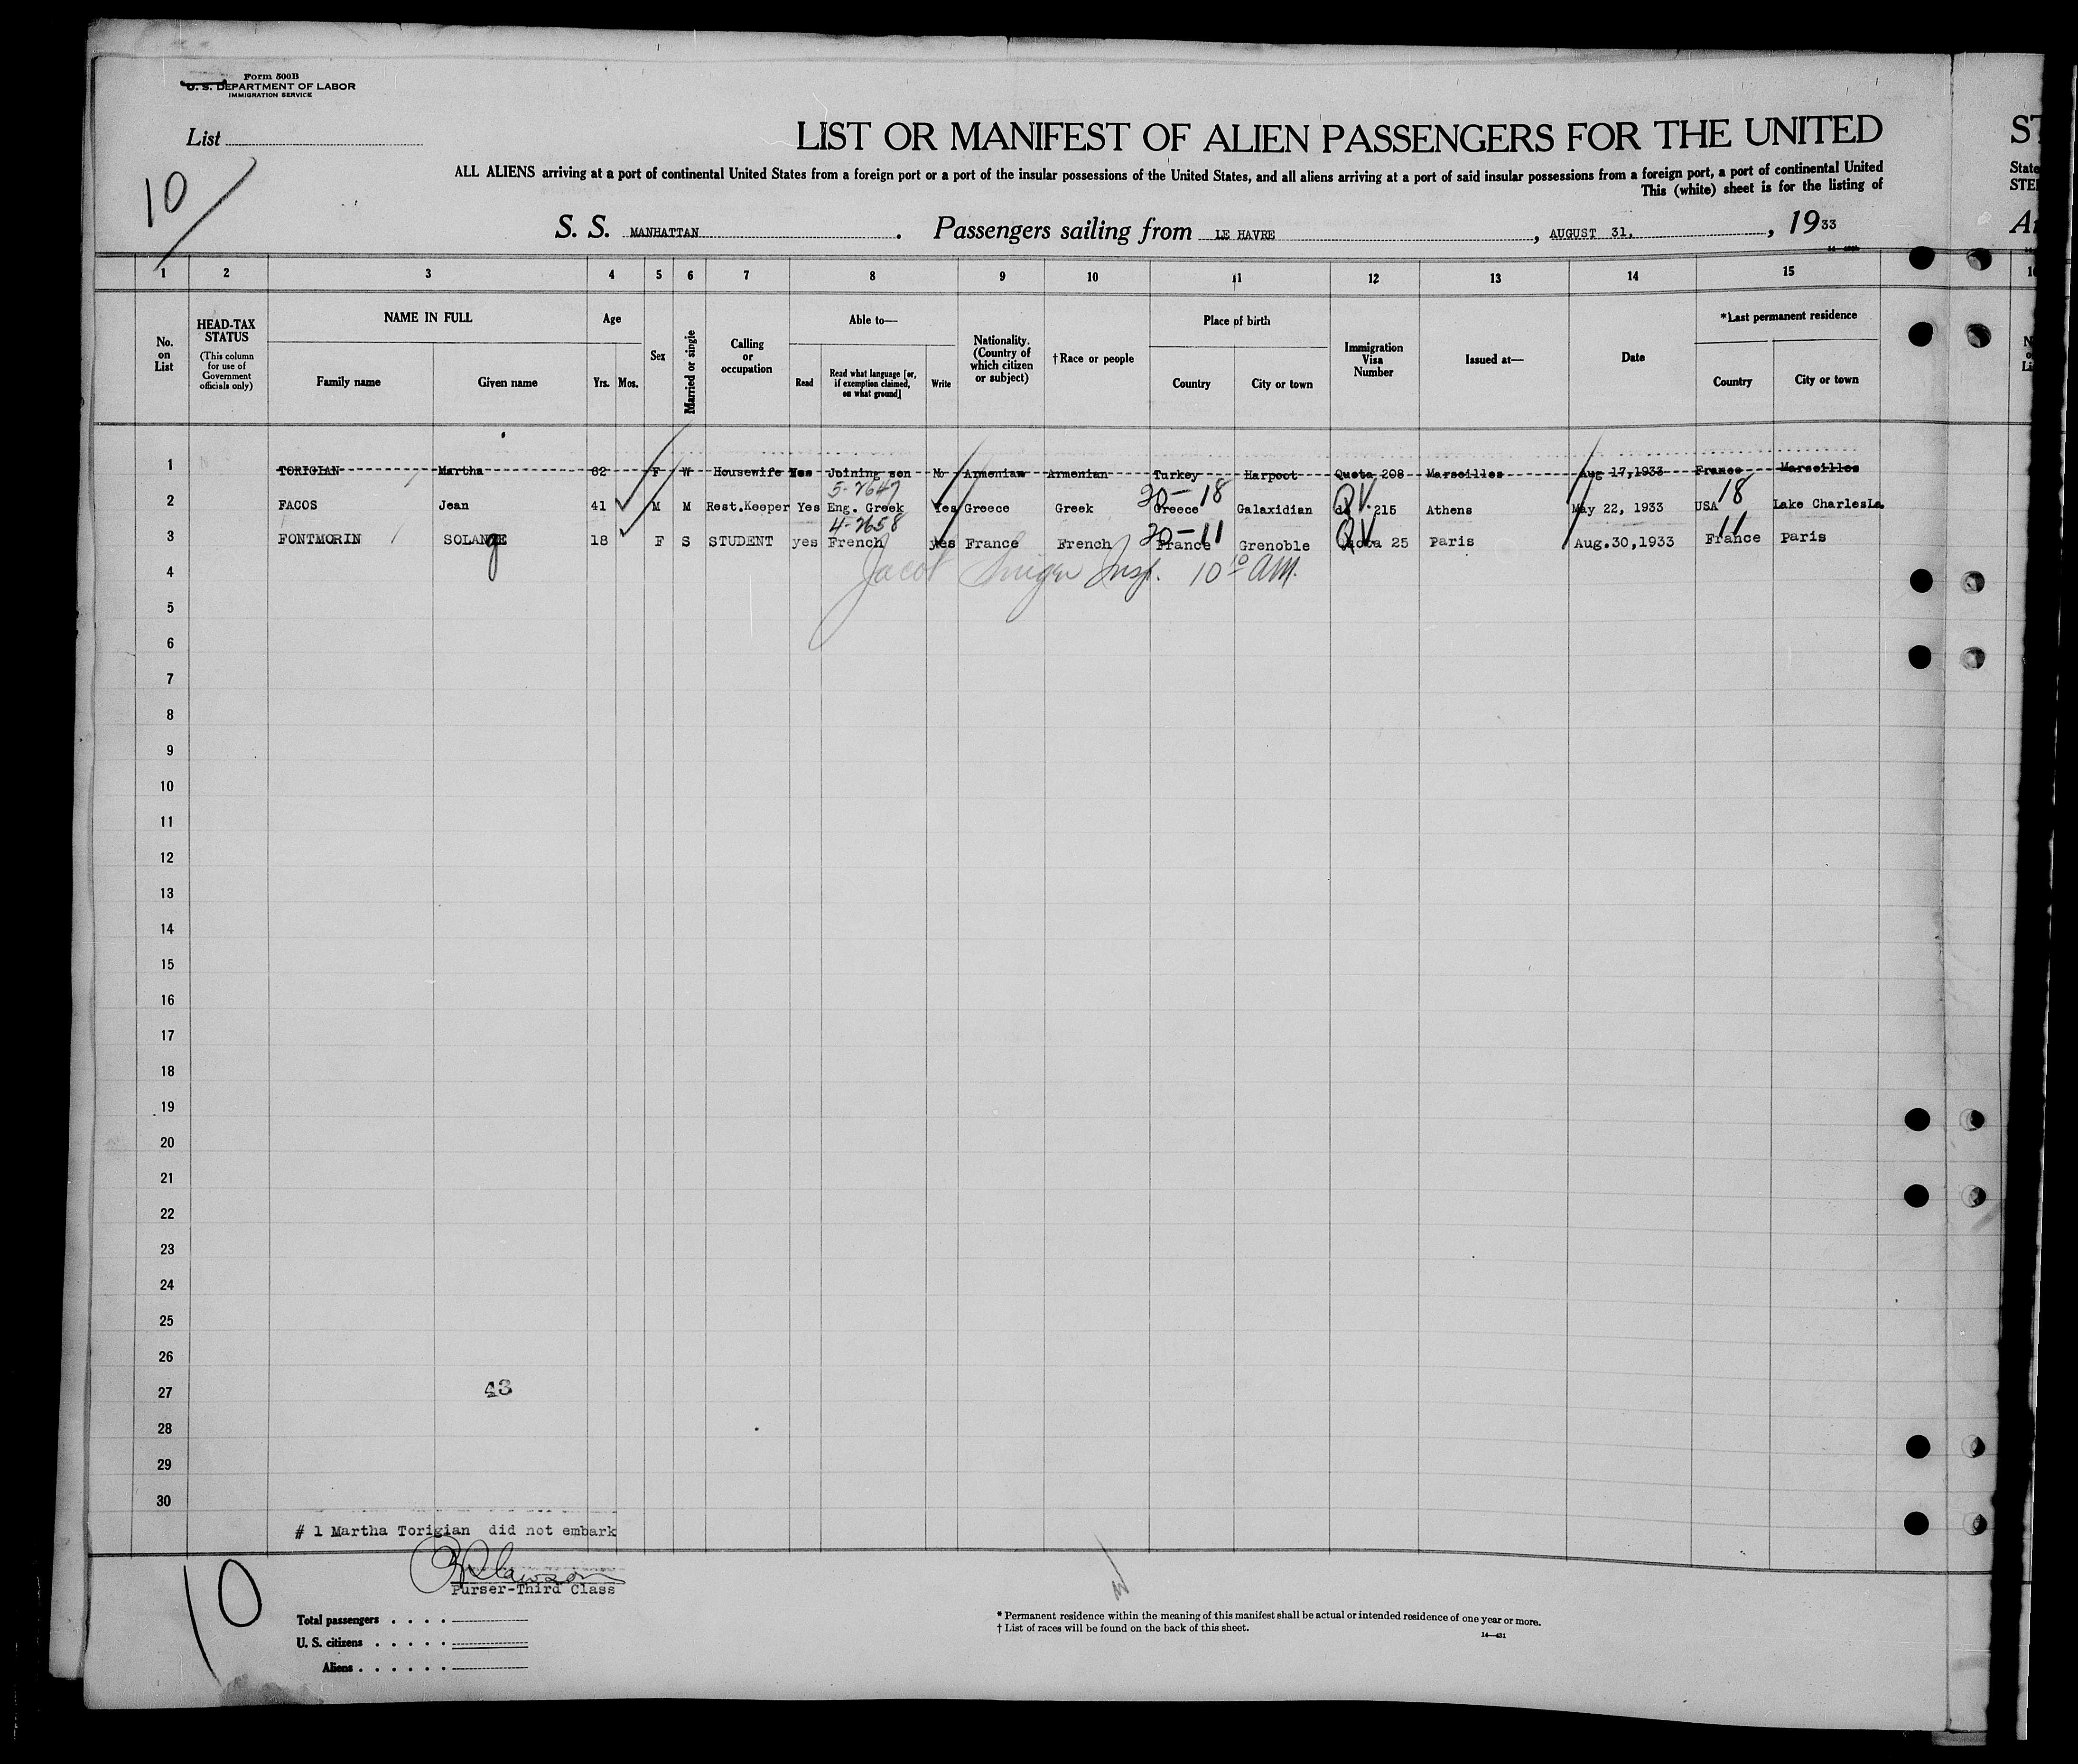 Form 500B
U. S. DEPARTMENT OF LABOR
IMMIGRATION SERVICE
List
10
LIST OR MANIFEST OF ALIEN PASSENGERS FOR THE UNITED
ALL ALIENS arriving at a port of continental United States from a foreign port or a port of the insular possessions of the United States, and all aliens arriving at a port of said insular possessions from a foreign port, a port of continental United
This (white) sheet is for the listing of
S. S. MANHATTAN. Passengers sailing from LE HAVRE, AUGUST 31, , 1933
ST
State
STE
1 2 3 4 5 6 7 8 9 10 11 12 13 14 15
No. on List
HEAD-TAX STATUS (This column for use of Government officials only)
NAME IN FULL
Family name
Given name
Age
Yrs. Mos.
Sex
Married or single
Calling or occupation
Able to—
Read
Read what language [or, if exemption claimed, on what ground]
Write
Nationality. (Country of which citizen or subject)
†Race or people
Place of birth
Country
City or town
Immigration Visa Number
Issued at—
Date
*Last permanent residence
Country
City or town
1 TORIGIAN Martha 62 F W Housewife Yes Joining son No Armenian Armenian Turkey Harpoot Quota 208 Marseilles Aug 17,1933 France Marseilles
5-7647 20-18 QV 18
2 FACOS Jean 41 M M Rest.Keeper Yes Eng. Greek Yes Greece Greek Greece Galaxidian 215 Athens May 22, 1933 USA Lake Charles La.
4-7658 20-11 QV 11
3 FONTMORIN SOLANGE 18 F S STUDENT yes French yes France French France Grenoble Quota 25 Paris Aug.30,1933 France Paris
4 Jacob Insp. 10 10 AM.
5
6
7
8
9
10
11
12
13
14
15
16
17
18
19
20
21
22
23
24
25
26
27 43
28
29
30
# 1 Martha Torigian did not embark
Purser-Third Class
10
Total passengers
U. S. citizens
Aliens
* Permanent residence within the meaning of this manifest shall be actual or intended residence of one year or more.
† List of races will be found on the back of this sheet.
14—431